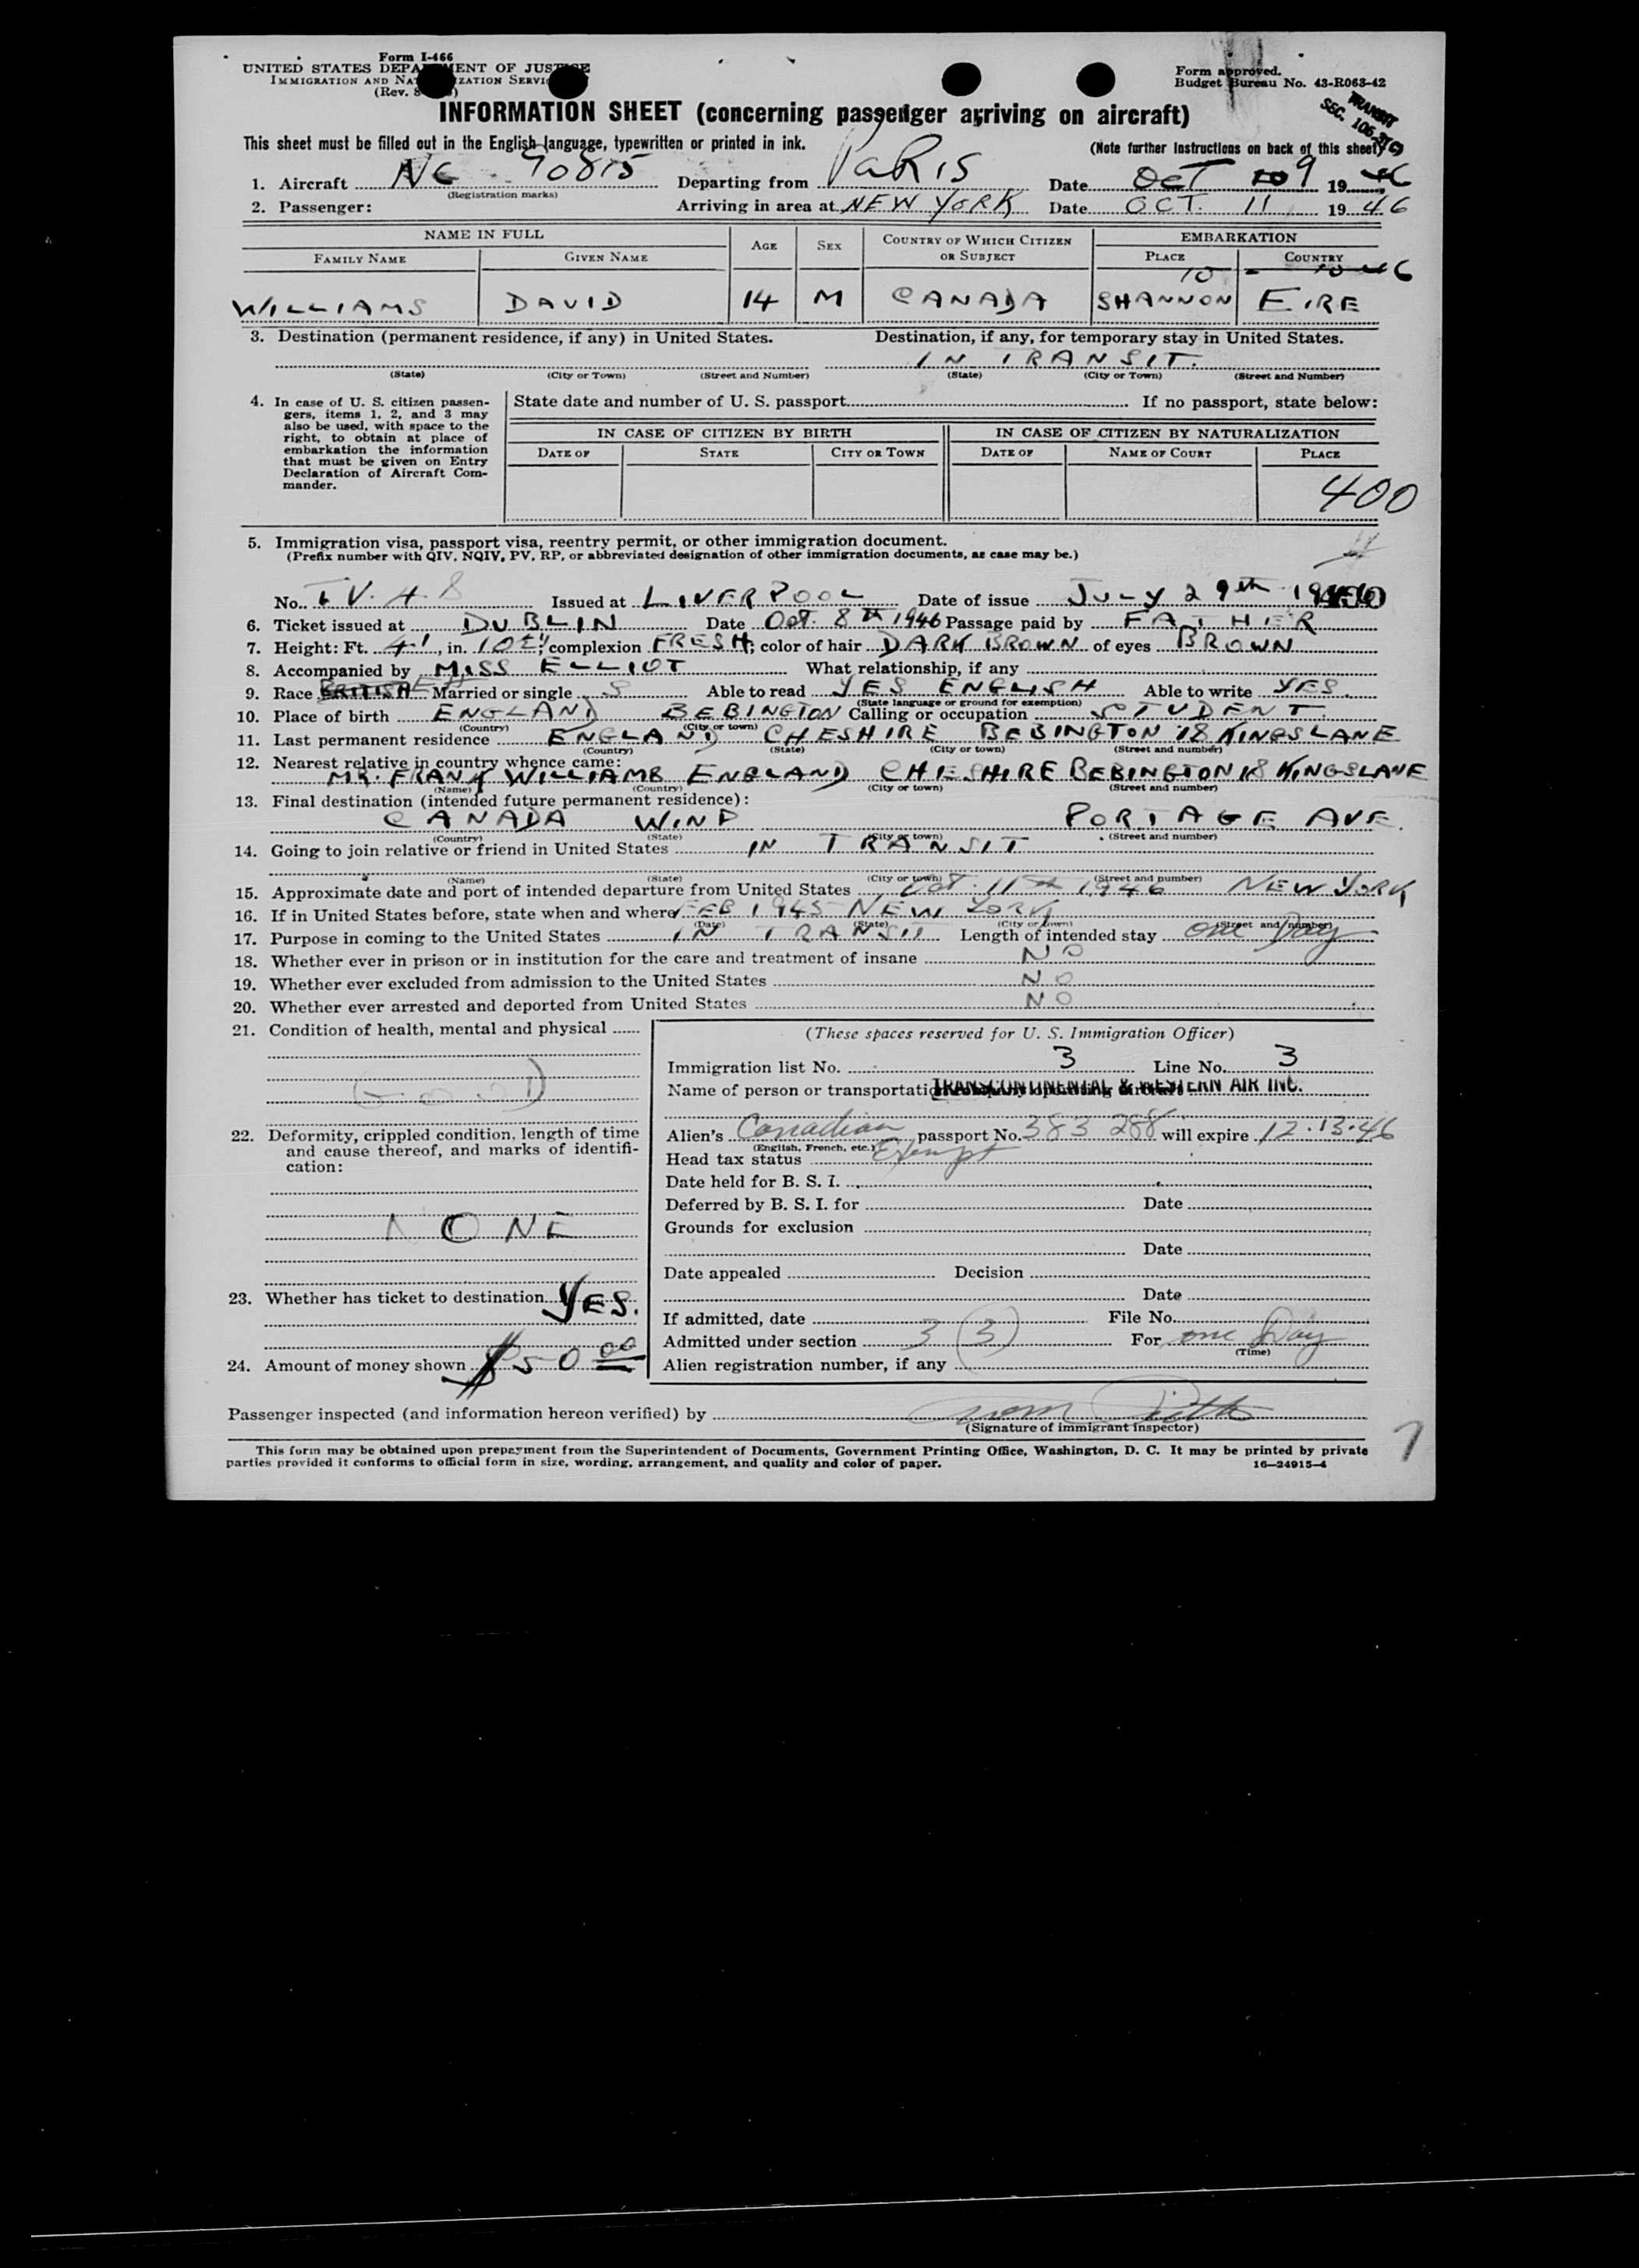 Form I-466
UNITED STATES DEPARTMENT OF JUSTICE
IMMIGRATION AND NATURALIZATION SERVICE
(Rev.
Form approved.
Budget Bureau No. 43-R063-42
TRANSIT
SEC.
INFORMATION SHEET (concerning passenger arriving on aircraft)
This sheet must be filled out in the English language, typewritten or printed in ink.
(Note further Instructions on back of this sheet)
1. Aircraft NC 90815 Departing from PaRIS Date OCT 9 1946
(Registration marks)
2. Passenger: Arriving in area at NEW YORK Date OCT. 11 1946
NAME IN FULL AGE SEX COUNTRY OF WHICH CITIZEN OR SUBJECT EMBARKATION
FAMILY NAME GIVEN NAME PLACE COUNTRY
10 - 10 - 46
WILLIAMS DAVID 14 M CANADA SHANNON EIRE
3. Destination (permanent residence, if any) in United States. Destination, if any, for temporary stay in United States.
IN TRANSIT.
(State) (City or Town) (Street and Number) (State) (City or Town) (Street and Number)
4. In case of U. S. citizen passengers, items 1, 2, and 3 may also be used, with space to the right, to obtain at place of embarkation the information that must be given on Entry Declaration of Aircraft Commander.
State date and number of U. S. passport If no passport, state below:
IN CASE OF CITIZEN BY BIRTH IN CASE OF CITIZEN BY NATURALIZATION
DATE OF STATE CITY OR TOWN DATE OF NAME OF COURT PLACE
400
5. Immigration visa, passport visa, reentry permit, or other immigration document.
(Prefix number with QIV, NQIV, PV, RP, or abbreviated designation of other immigration documents, as case may be.)
No. T.V. 48 Issued at LIVERPOOL Date of issue JULY 29th
6. Ticket issued at DUBLIN Date Oct. 8TH 1946 Passage paid by FATHER
7. Height: Ft. 4', in. 10½", complexion FRESH; color of hair DARK BROWN of eyes BROWN
8. Accompanied by MISS ELLIOT What relationship, if any
9. Race BRITISH Married or single S Able to read YES ENGLISH Able to write YES.
(State language or ground for exemption)
10. Place of birth ENGLAND BEBINGTON Calling or occupation STUDENT.
(Country) (City or town)
11. Last permanent residence ENGLAND CHESHIRE BEBINGTON 18 KINGS LANE
(Country) (State) (City or town) (Street and number)
12. Nearest relative in country whence came:
MR. FRANK WILLIAMS ENGLAND CHESHIRE BEBINGTON 18 KINGSLANE
(Name) (Country) (City or town) (Street and number)
13. Final destination (intended future permanent residence):
CANADA WIND PORTAGE AVE.
(Country) (State) (City or town) (Street and number)
14. Going to join relative or friend in United States IN TRANSIT
(Name) (State) (City or town) (Street and number)
15. Approximate date and port of intended departure from United States Oct. 11th 1946 NEW YORK
16. If in United States before, state when and where FEB 1945 NEW YORK
(Date) (State) (City or town) (Street and number)
17. Purpose in coming to the United States IN TRANSIT Length of intended stay one Day
18. Whether ever in prison or in institution for the care and treatment of insane NO
19. Whether ever excluded from admission to the United States NO
20. Whether ever arrested and deported from United States NO
21. Condition of health, mental and physical
GOOD
22. Deformity, crippled condition, length of time and cause thereof, and marks of identification:
NONE
23. Whether has ticket to destination YES.
24. Amount of money shown $50 00
(These spaces reserved for U. S. Immigration Officer)
Immigration list No. 3 Line No. 3
Name of person or transportation company operating aircraft TRANSCONTINENTAL & WESTERN AIR INC.
Alien's Canadian passport No. 383 288 will expire 12-13-46
(English, French, etc.)
Head tax status Exempt
Date held for B. S. I.
Deferred by B. S. I. for Date
Grounds for exclusion
Date
Date appealed Decision
Date
If admitted, date File No.
Admitted under section 3 (3) For one Day
(Time)
Alien registration number, if any
Passenger inspected (and information hereon verified) by
(Signature of immigrant inspector)
This form may be obtained upon prepayment from the Superintendent of Documents, Government Printing Office, Washington, D. C. It may be printed by private
parties provided it conforms to official form in size, wording, arrangement, and quality and color of paper. 16—24915-4